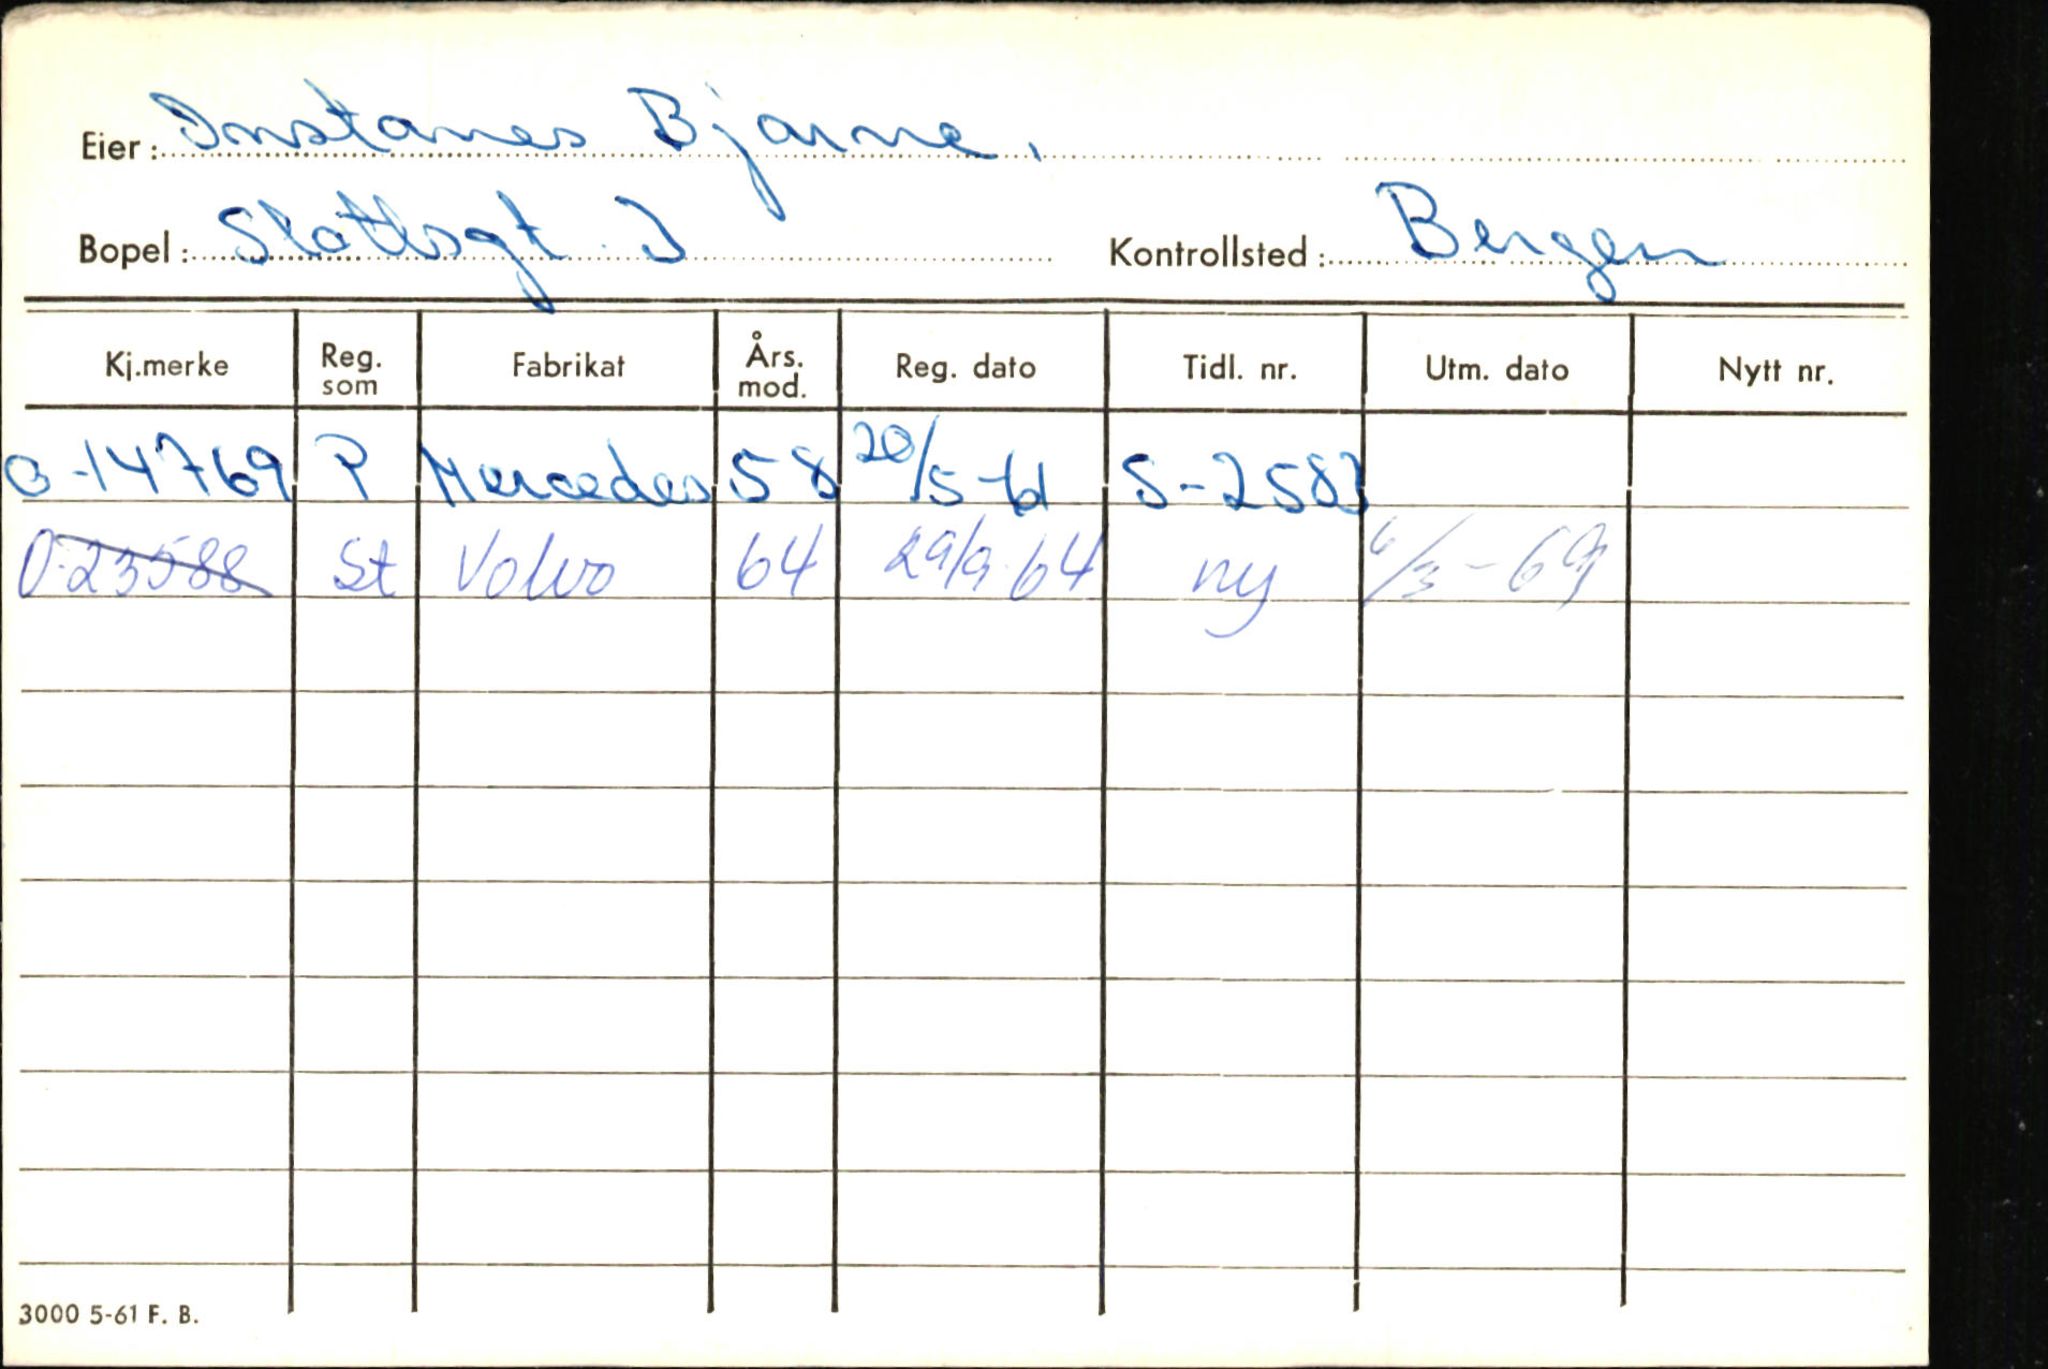 Eier: Instanes Bjarne.
Bopel: Slottsgt 3 Kontrollsted: Bergen
Kj.merke Reg. som Fabrikat Års. mod. Reg. dato Tidl. nr. Utm. dato Nytt nr.
O-14769 P Mercedes 58 20/5-61 S-2583
O-23588 St Volvo 64 29/9-64 ny 6/3-69
3000 5-61 F. B.